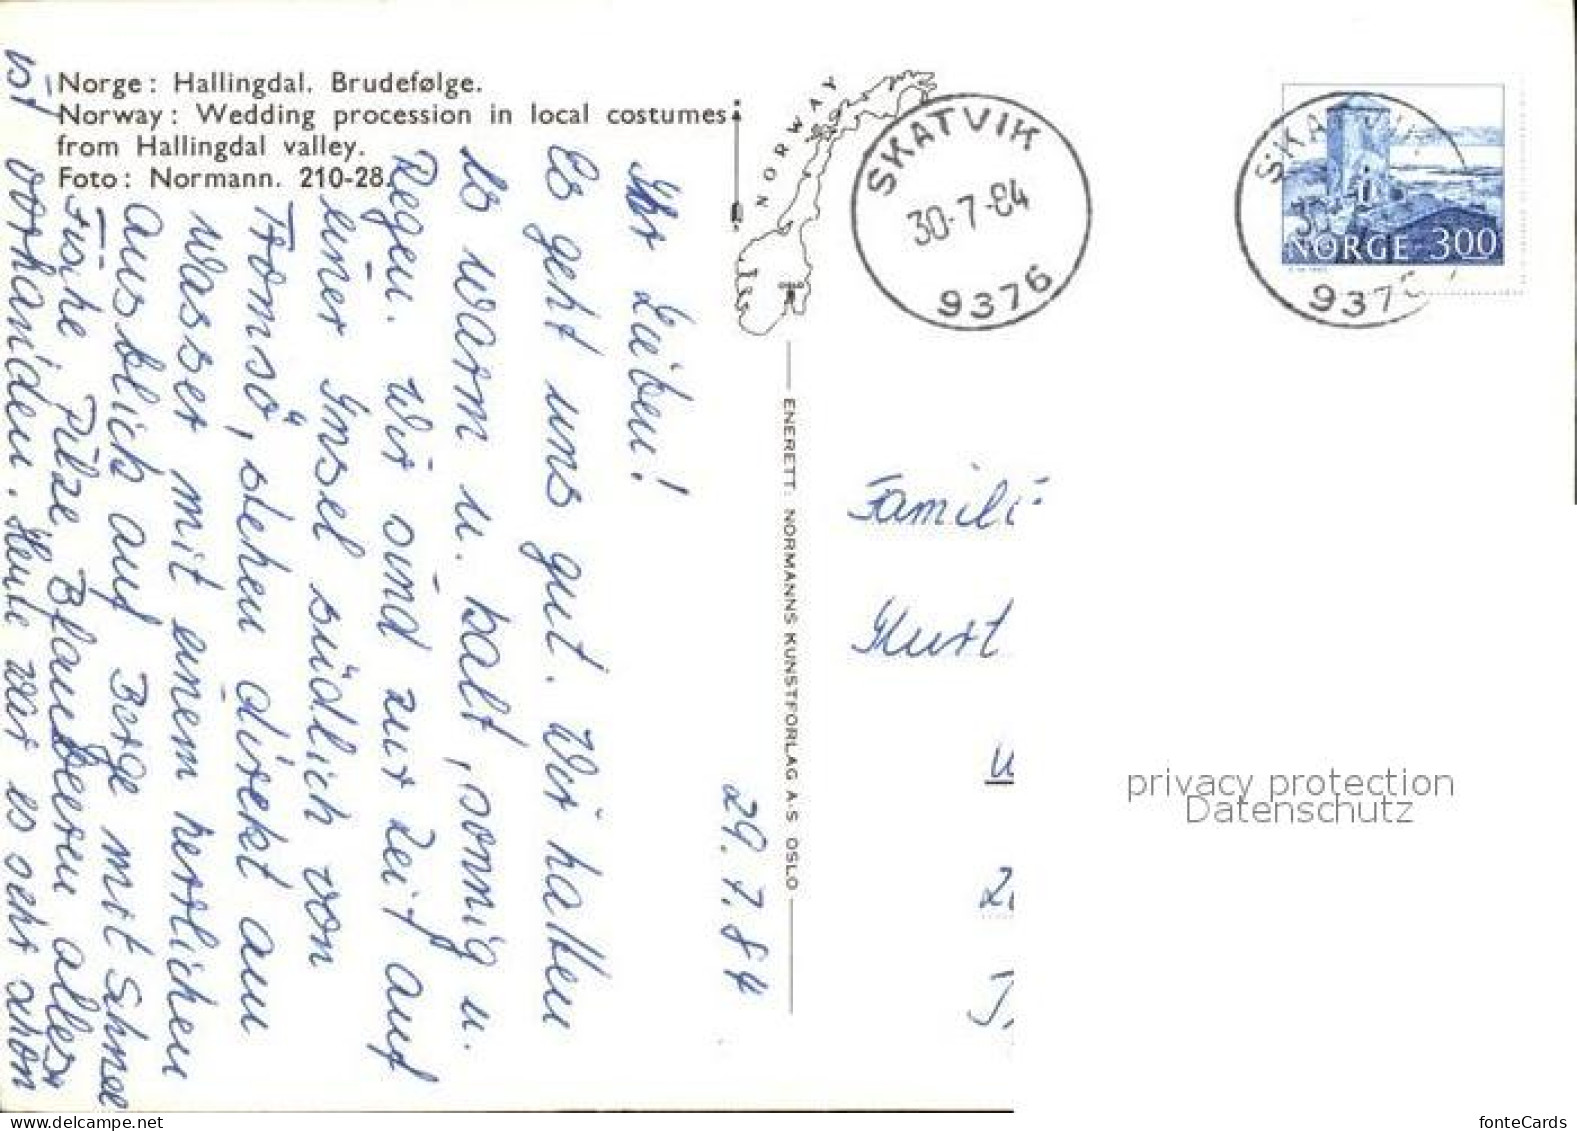 Norge: Hallingdal. Brudefølge.
Norway: Wedding procession in local costumes
from Hallingdal valley.
Foto: Normann. 210-28.
NORWAY
SKATVIK
30-7-84
9376
SKATVIK
9376
NORGE 300
ENERETT: NORMANNS KUNSTFORLAG A·S OSLO
29.7.84
Ihr Lieben!
Es geht uns gut. Wir hatten
es warm u. kalt, sonnig u.
Regen. Wir sind zur Zeit auf
einer Insel südlich von
Tromsö, stehen direkt am
Wasser mit einem herrlichen
Ausblick auf Berge mit Schnee
Fische Pilze Blaubeeren alles
vorhanden. Heute war es sehr schön
ist
Famili
Kurt
privacy protection
Datenschutz
www.delcampe.net
fonteCards